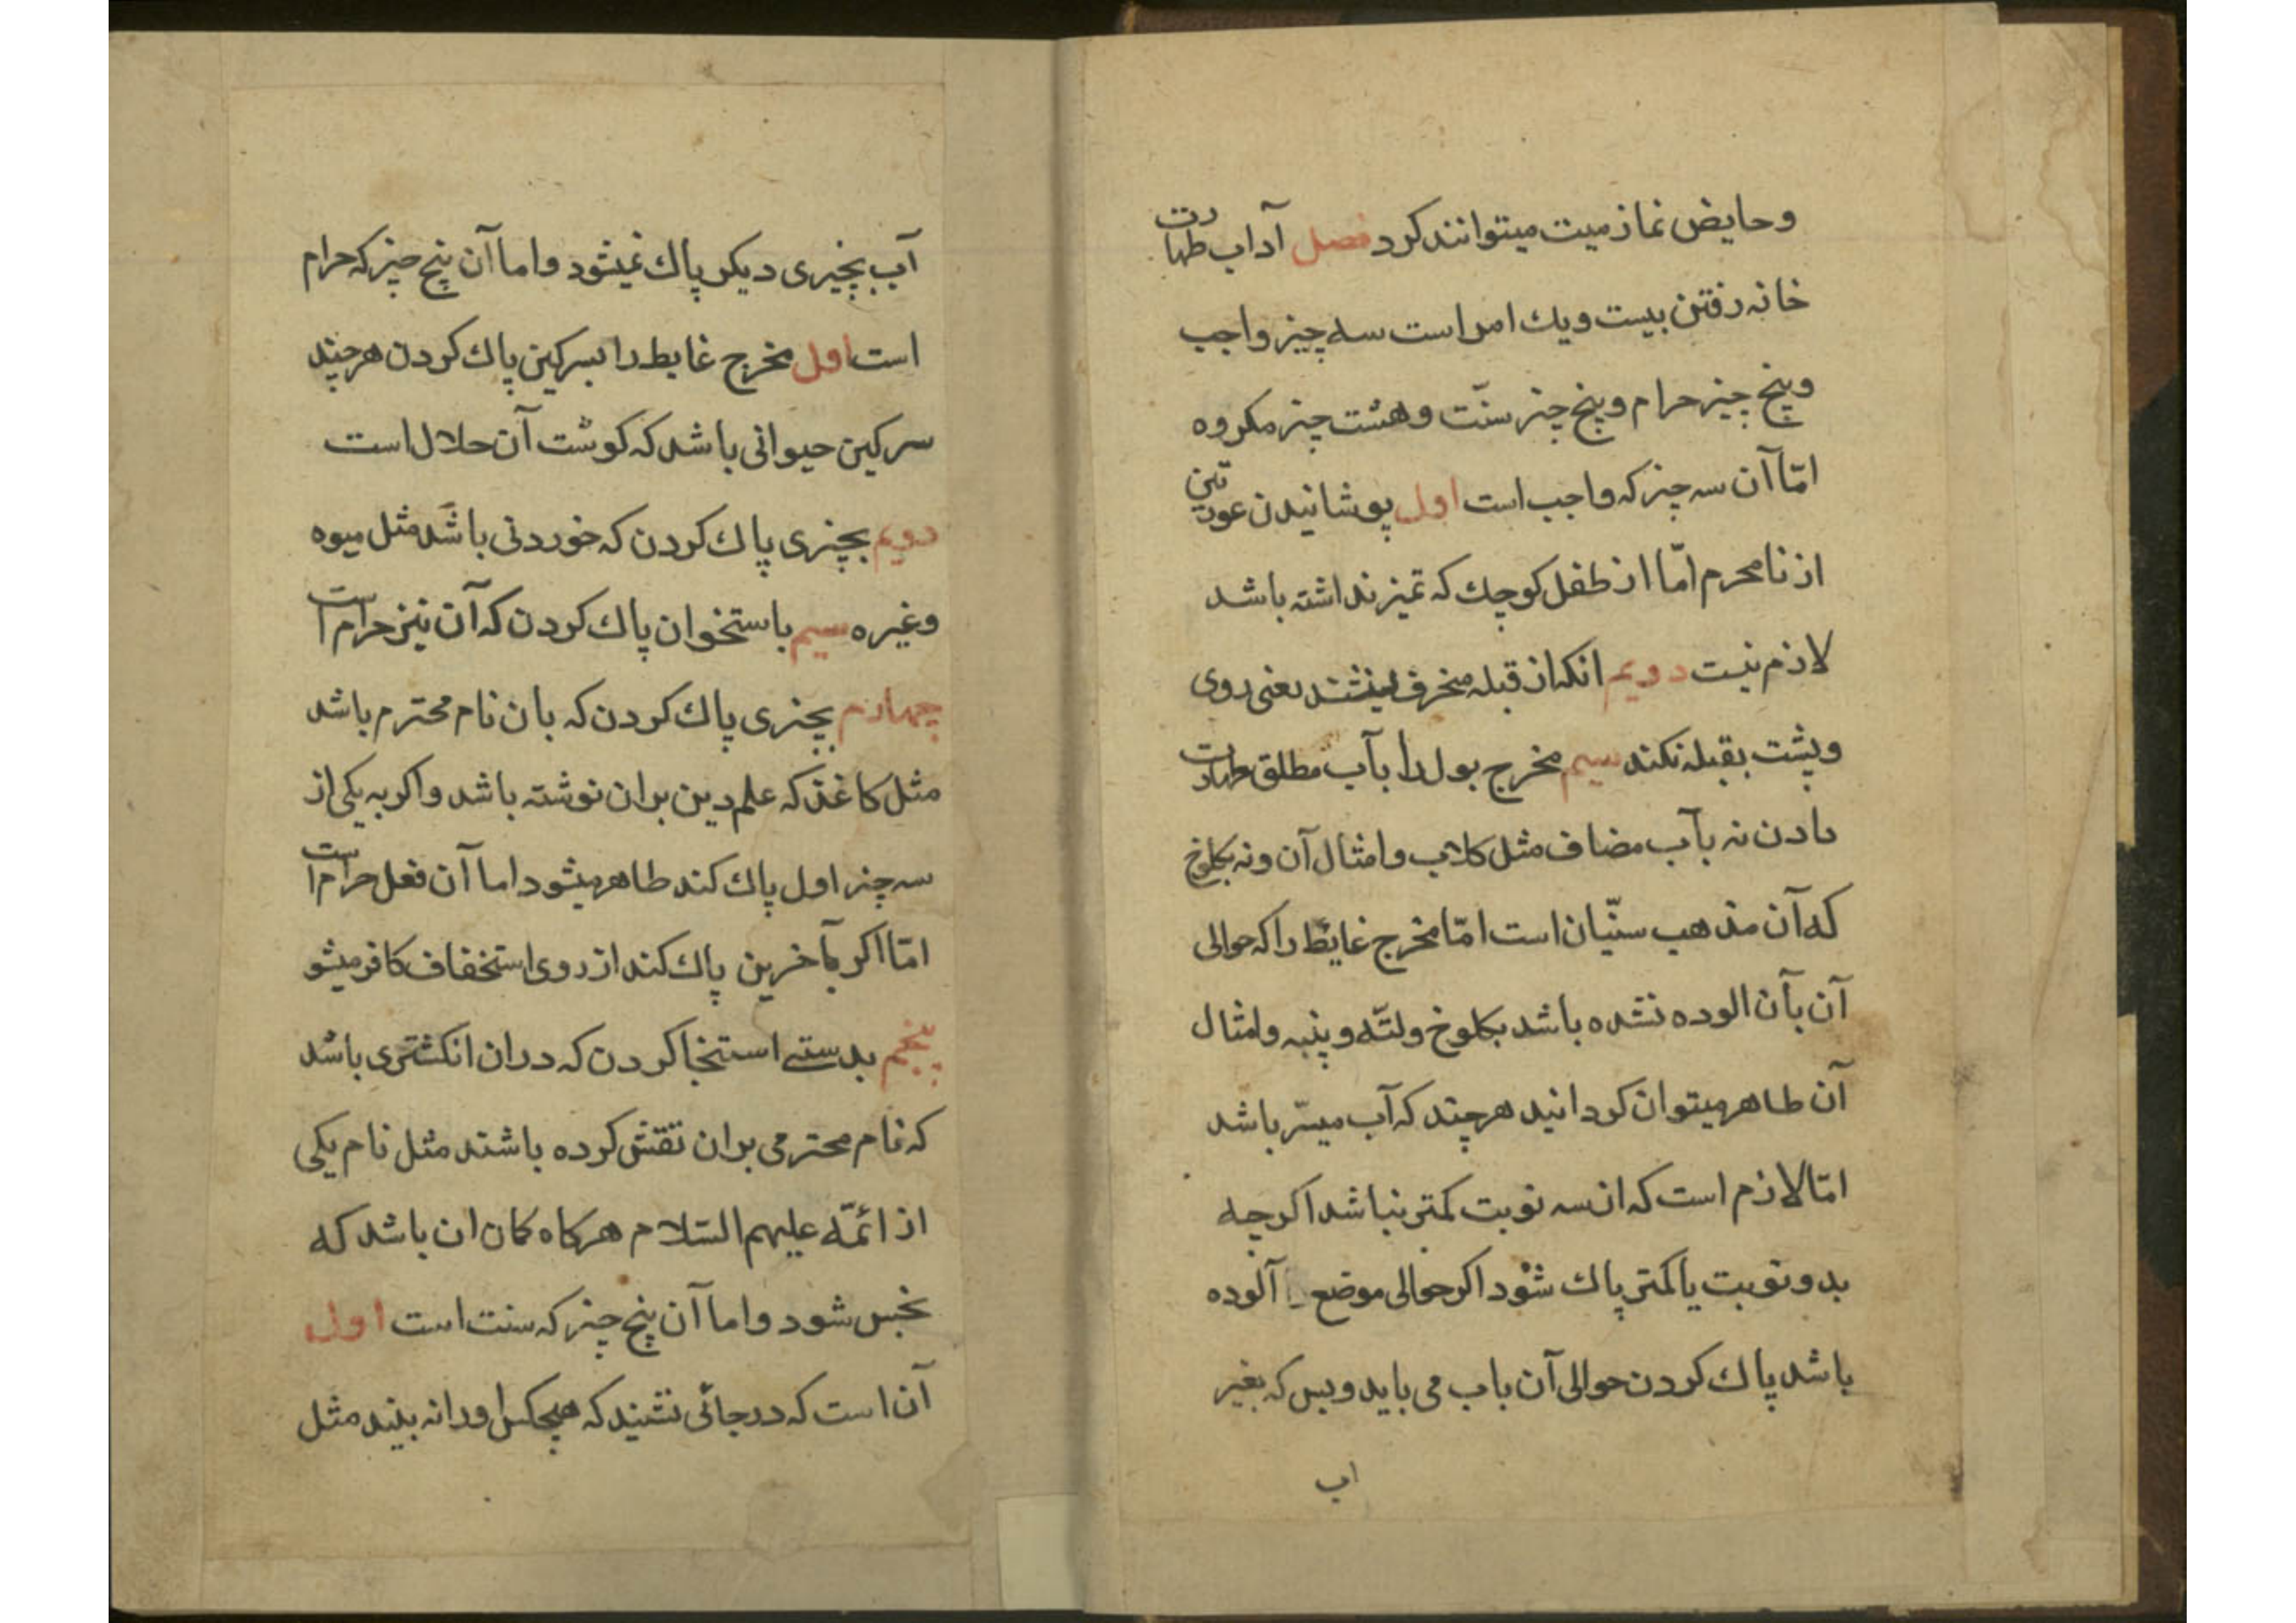 وحایض نماز میت میتوانند کرد فصل آداب طهارت
خانه رفتن بیست ویك امر است سه چیز واجب
وپنج چیز حرام وپنج چیز سنّت وهشت چیز مکروه
امّا آن سه چیز که واجب است اول پوشانیدن عورتین
از نامحرم امّا از طفل کوچك که تمیز نداشته باشد
لازم نیست دویم انکه از قبله منحرف نشیند یعنی روی
وپشت بقبله نکند سیم مخرج بول را بآب مطلق طهارت
دادن نه بآب مضاف مثل کلاب وامثال آن ونه بکلوخ
که آن مذهب سنّیان است امّا مخرج غایط را که حوالی
آن بآن الوده نشده باشد بکلوخ ولتّه وپنبه وامثال
آن طاهر میتوان کردانید هرچند که آب میسّر باشد
امّا لازم است که از سه نوبت کمتر نباشد اکرچه
بدو نوبت یا کمتر پاك شود اکر حوالی موضع آلوده
باشد پاك کردن حوالی آن باب می باید وبس که بغیر
اب
آب بچیزی دیکر پاك نمیشود واما آن پنج چیز که حرام
است اول مخرج غایط را بسرکین پاك کردن هرچند
سرکین حیوانی باشد که کوشت آن حلال است
دویم بچیزی پاك کردن که خوردنی باشد مثل میوه
وغیره سیم باستخوان پاك کردن که آن نیز حرام است
چهارم بچیزی پاك کردن که بان نام محترم باشد
مثل کاغذ که علم دین بران نوشته باشد واکر به یکی از
سه چیز اول پاك کند طاهر میشود اما آن فعل حرام است
امّا اکر بآخرین پاك کند از روی استخفاف کافر میشو
پنجم بدستے استنجا کردن که دران انکشتری باشد
که نام محترمی بران نقش کرده باشند مثل نام یکی
از ائمّه علیهم السّلام هرکاه کمان ان باشد که
نجس شود واما آن پنج چیز که سنت است اول
آن است که در جائی نشیند که هیچکس اورا نه بیند مثل